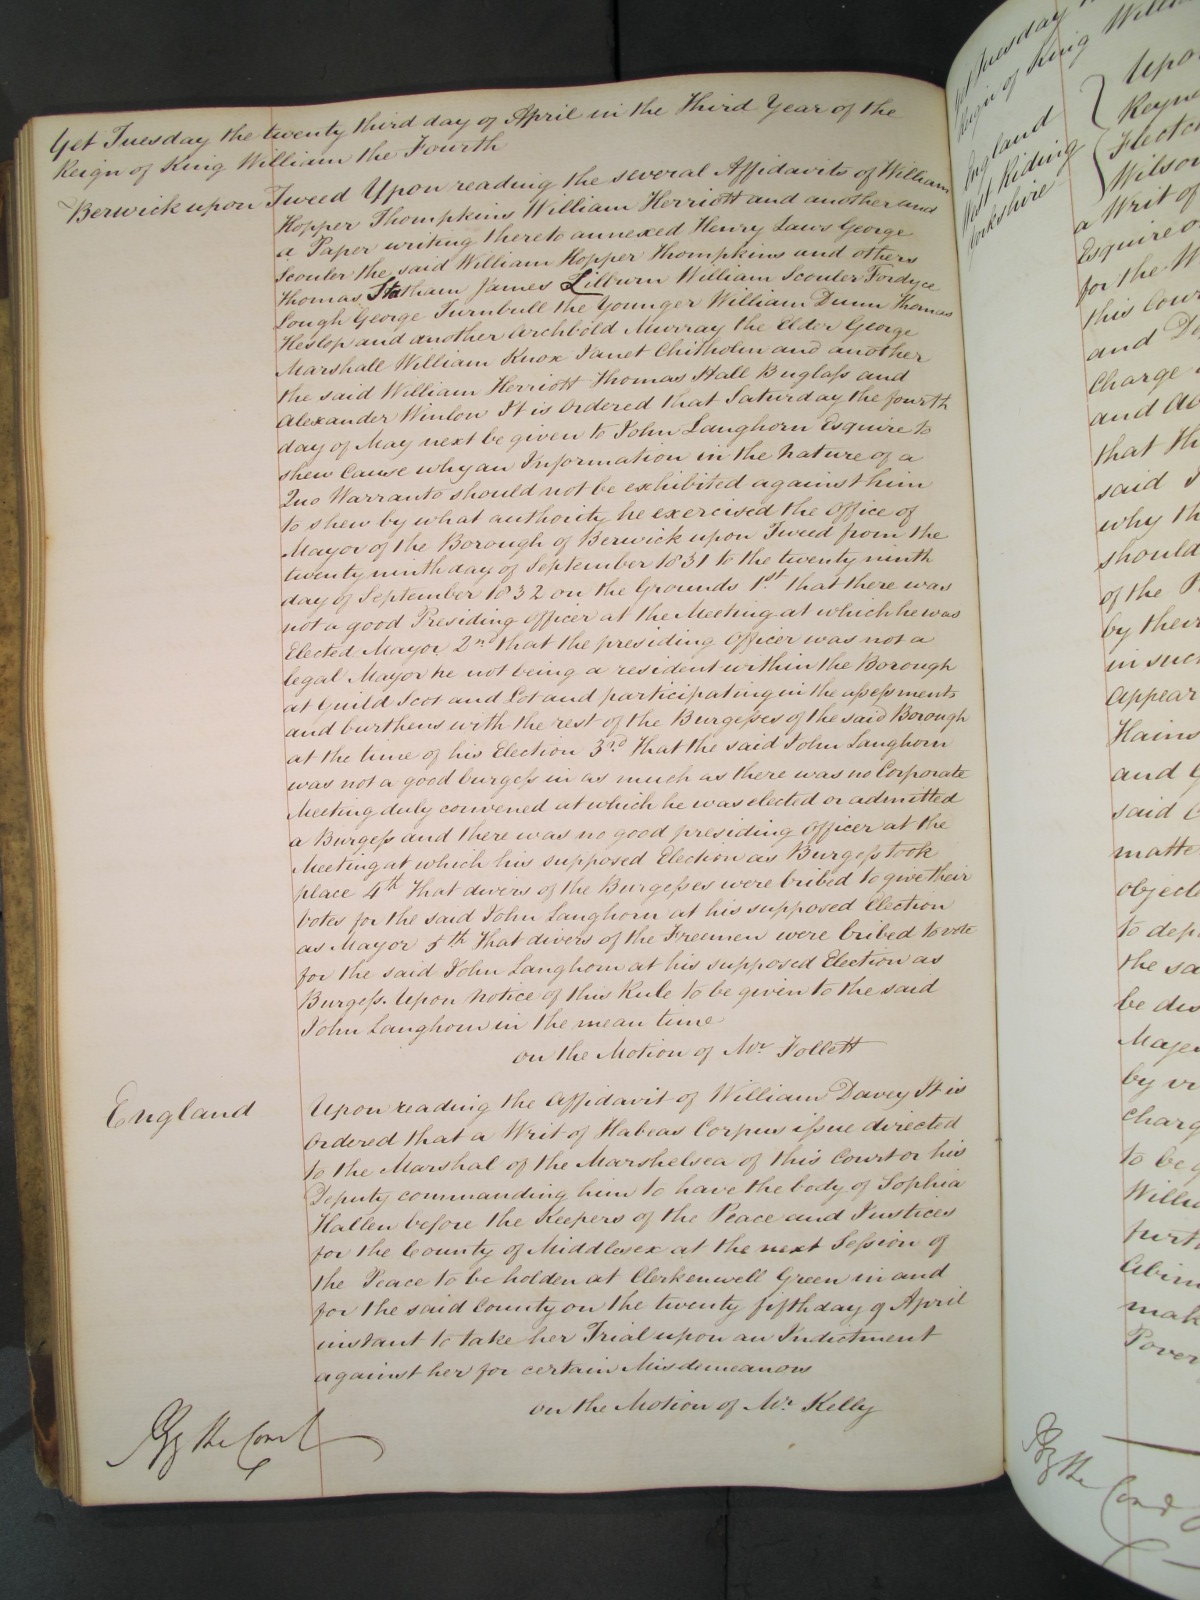 Yet Tuesday the twenty third day of April in the Third Year of the
Reign of King William the Fourth
Berwick upon Tweed Upon reading the several Affidavits of William
Hopper Thompkins William Herriott and another and
a Paper writing thereto annexed Henry Laws George
Scouler the said William Hopper Thompkins and others
Thomas Statham James Lilburn William Scouler Fordyce
Lough George Turnbull the Younger William Dunn Thomas
Heslop and another Archbold Murray the Elder George
Marshall William Knox Janet Chisholm and another
the said William Herriott Thomas Hall Buglass and
Alexander Winlow It is Ordered that Saturday the fourth
day of May next be given to John Langhorn Esquire to
shew Cause why an Information in the Nature of a
Quo Warranto should not be exhibited against him
to shew by what authority he exercised the Office of
Mayor of the Borough of Berwick upon Tweed from the
twenty ninth day of September 1831 to the twenty ninth
day of September 1832 on the Grounds 1st. that there was
not a good Presiding Officer at the Meeting at which he was
Elected Mayor 2nd that the presiding Officer was not a
legal Mayor he not being a resident within the Borough
at Guild Scot and Lot and participating in the assessments
and burthens with the rest of the Burgesses of the said Borough
at the time of his Election 3rd That the said John Langhorn
was not a good burgess in as much as there was no Corporate
Meeting duly convened at which he was elected or admitted
a Burgess and there was no good presiding Officer at the
Meeting at which his supposed Election as Burgess took
place 4th That divers of the Burgesses were bribed to give their
Votes for the said John Langhorn at his supposed Election
as Mayor 5th That divers of the Freemen were bribed to vote
for the said John Langhorn at his supposed Election as
Burgess. Upon Notice of this Rule to be given to the said
John Langhorn in the mean time
on the Motion of Mr. Follett
England Upon reading the Affidavit of William Davey It is
Ordered that a Writ of Habeas Corpus issue directed
to the Marshal of the Marshelsea of this Court or his
Deputy commanding him to have the body of Sophia
Hallen before the Keepers of the Peace and Justices
for the County of Middlesex at the next Session of
the Peace to be holden at Clerkenwell Green in and
for the said County on the twenty fifth day of April
instant to take her Trial upon an Indictment
against her for certain Misdemeanors
on the Motion of Mr. Kelly
By the Court
Yet Tuesday
Reign of King
England
West Riding
Yorkshire
Wilson
a Writ of
Esquire
for the W
this Cour
and
Charge
and
that th
said J
why th
should
of the P
by their
in suc
appear
Hains
and G
said
matte
object
to dep
the sa
be dis
Majes
by vi
charg
to be g
Willia
furth
mak
Pover
By the Court